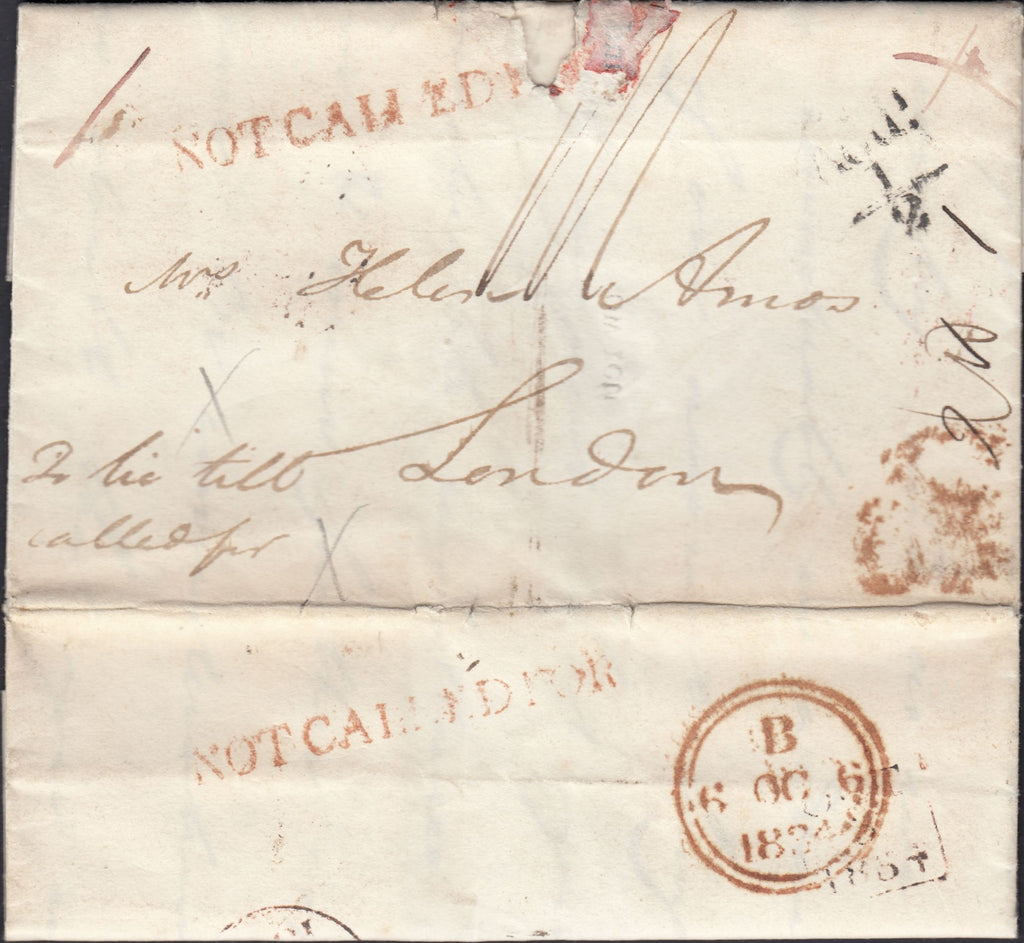 NOT CALLED
Mrs Helen Amos
London
To lie till
called for
NOT CALLED FOR
B
6 OC 6
1834
1834